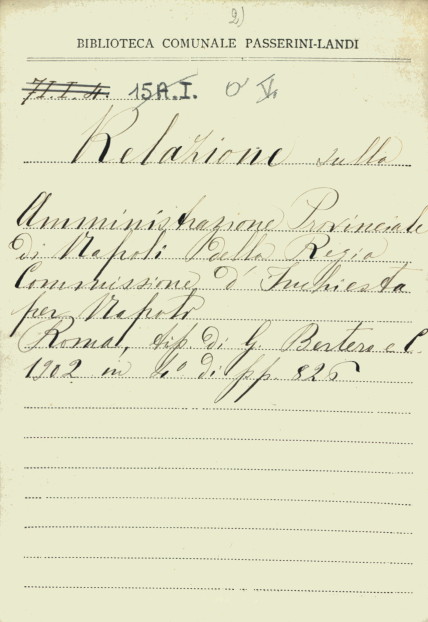 2)
BIBLIOTECA COMUNALE PASSERINI-LANDI
71.I.4. 15A.I.
Relazione sulla
Amministrazione Provinciale
di Napoli della Regia
Commissione d'Inchiesta
per Napoli
Roma, tip. di G. Bertero e C.
1902 in 4° di pp. 826